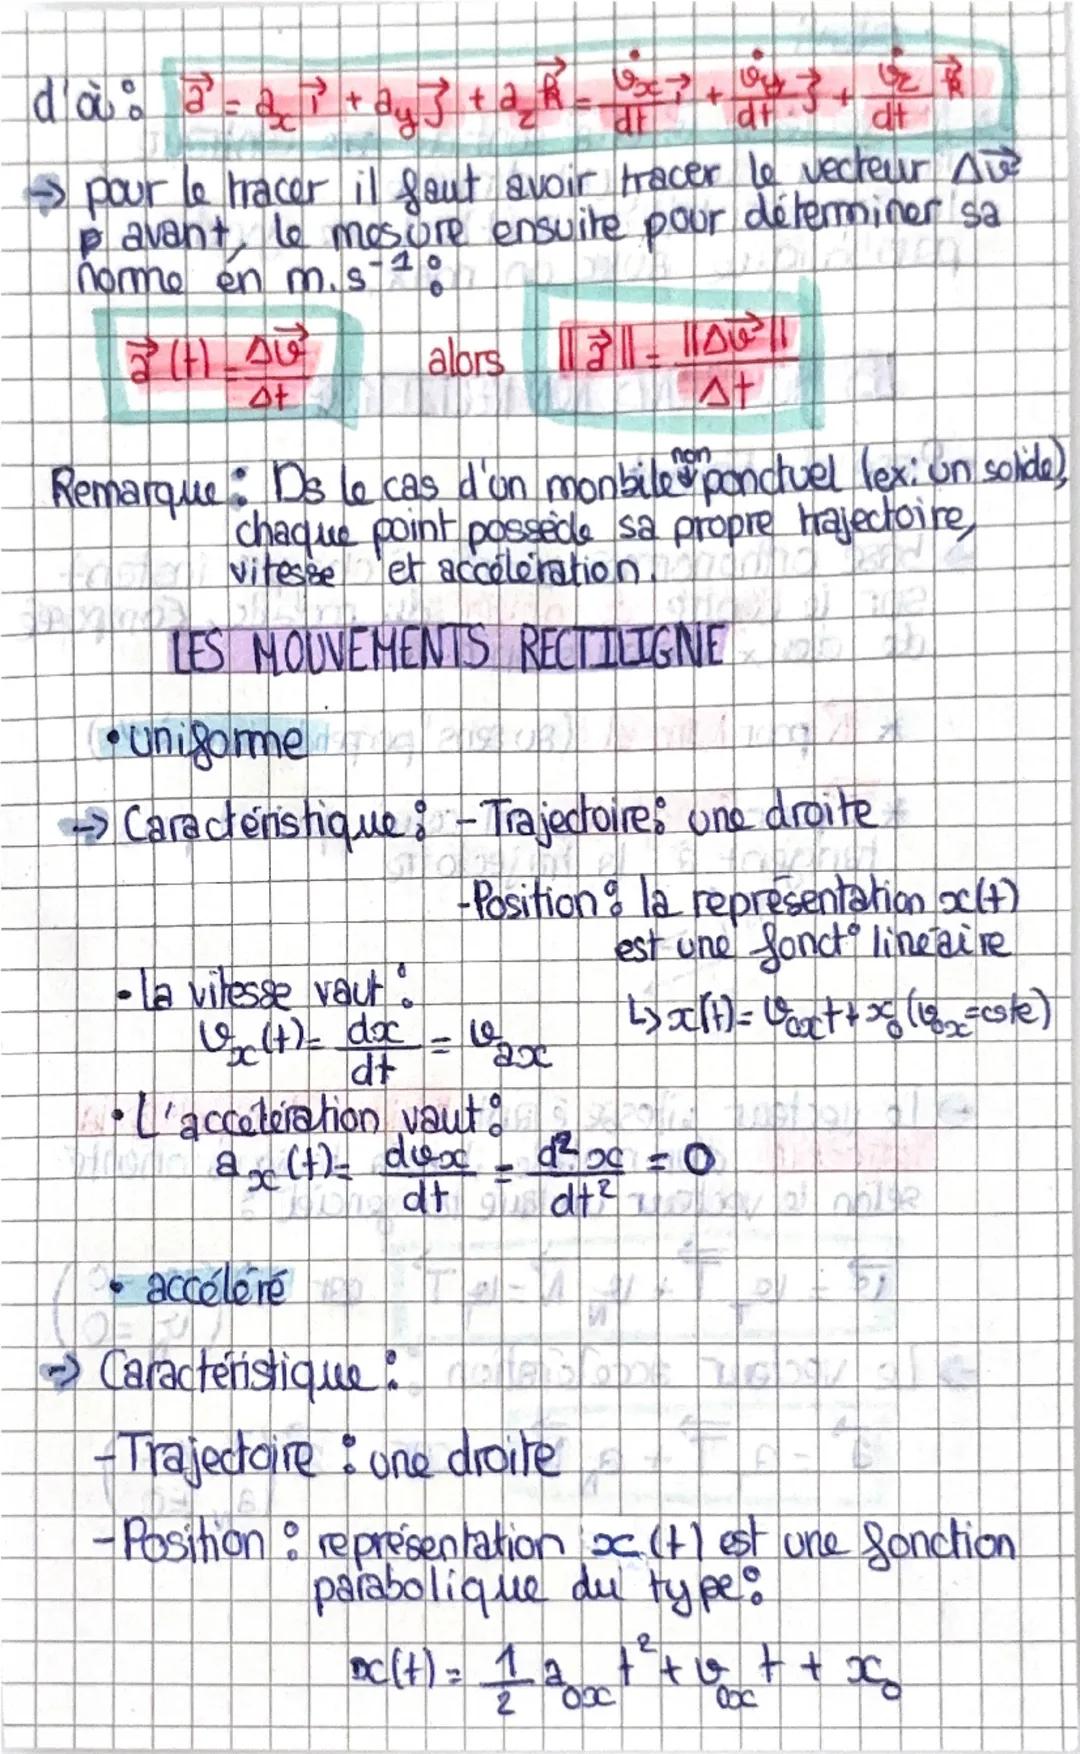 d'où : a⃗ = aₓ i⃗ + a_y j⃗ + a_z k⃗ = v̇ₓ/dt i⃗ + v̇_y/dt j⃗ + v̇_z/dt k⃗
→ pour le tracer il faut avoir tracer le vecteur Δv⃗
avant, le mesure ensuite pour déterminer sa
norme en m.s⁻¹ :
a⃗(t) = Δv⃗/Δt alors ||a⃗|| = ||Δv⃗||/Δt
Remarque : Ds le cas d'un monbile non ponctuel (ex: un solide),
chaque point possède sa propre trajectoire,
vitesse et accélération.
LES MOUVEMENTS RECTILIGNE
• uniforme
→ Caractéristique : - Trajectoire : une droite
- Position : la représentation x(t)
est une fonct° linéaire
↳ x(t) = v₀ₓt + x₀ (v₀ₓ = cste)
• la vitesse vaut :
vₓ(t) = dx/dt = v₀ₓ
• L'accélération vaut :
aₓ(t) = dvx/dt = d²x/dt² = 0
• accéléré
→ Caractéristique :
- Trajectoire : une droite
- Position : représentation x(t) est une fonction
parabolique du type :
x(t) = 1/2 a₀ₓ t² + v₀ₓ t + x₀